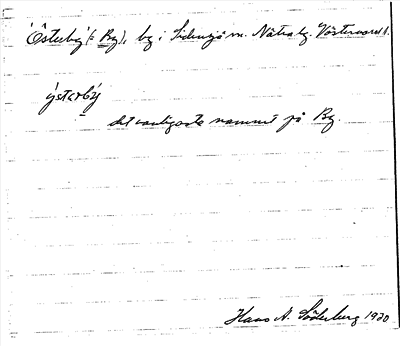 'Österby' (: By), by i Sidensjö sn. Nätra tg. Västernorrl. l.
ýstərbý
det vanligaste namnet på By.
Hans A. Söderberg 1930